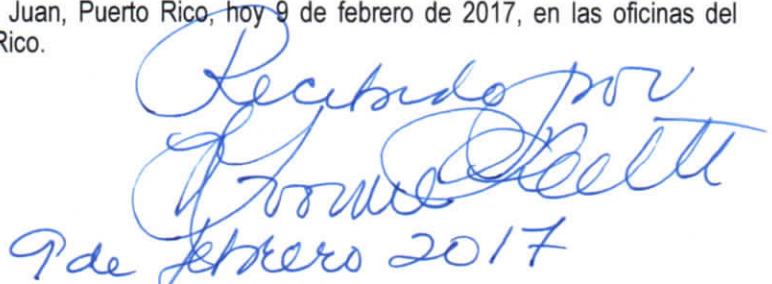 Juan, Puerto Rico, hoy 9 de febrero de 2017, en las oficinas del
Rico.
Recibido por
9 de febrero 2017